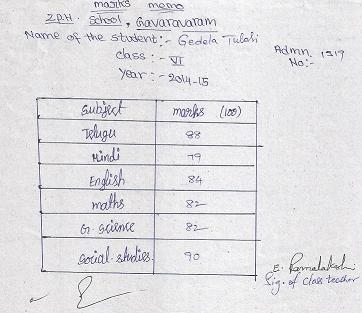 marks memo
Z.P.H. School, Gavaravaram
Name of the student:- Gedela Tulasi
Admn. No:- 1319
class :- VI
Year :- 2014-15
Subject marks (100)
Telugu 88
Hindi 79
English 84
maths 82
G. science 82
social. studies. 90
E. Ramalakshmi
Sig. of class teacher